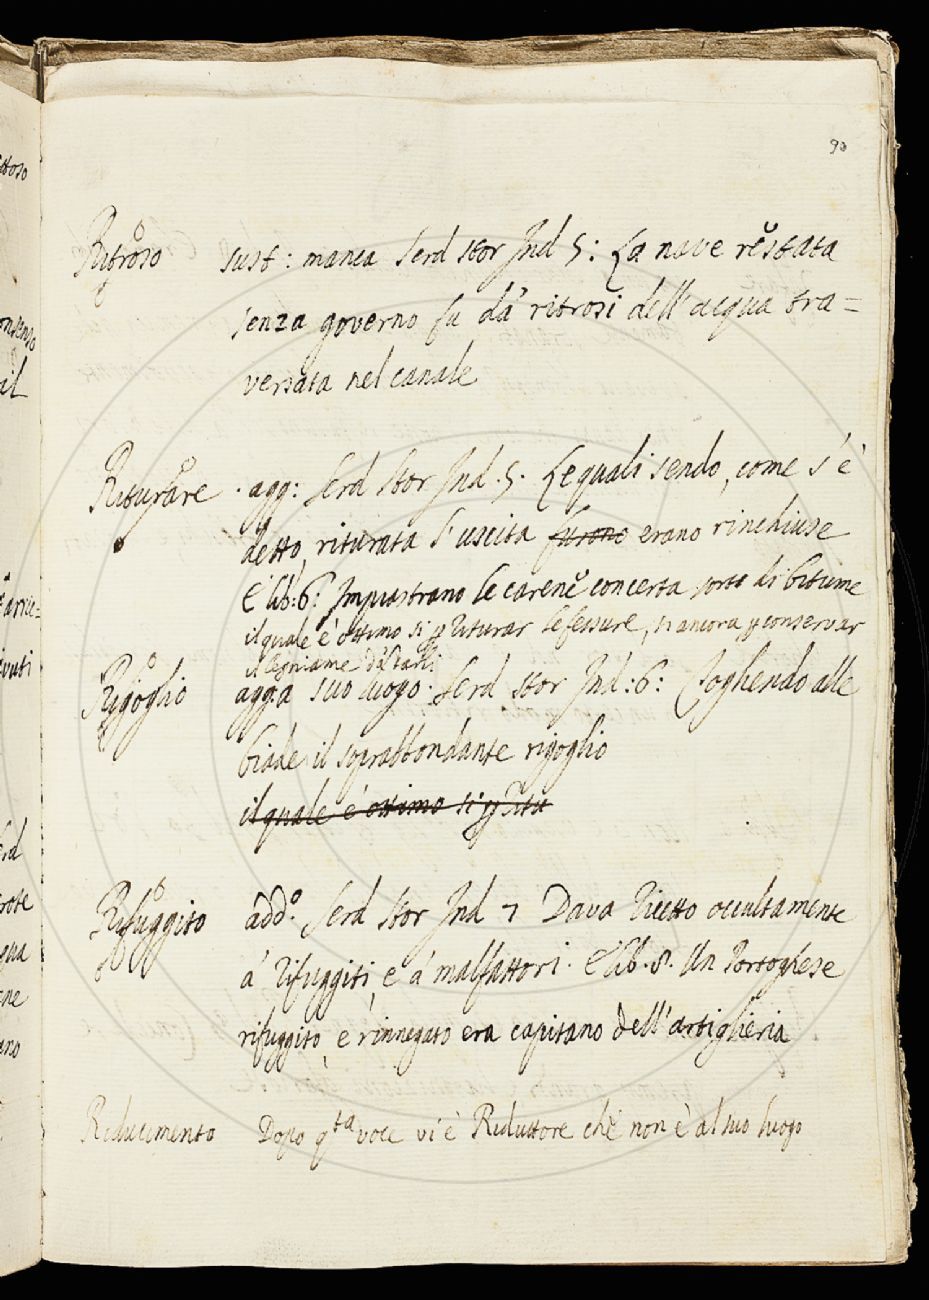 90
Ritroso sust: manca Serd stor Ind 5: La nave restata
senza governo fu da' ritrosi dell'acqua tra=
versata nel canale
Riturare. agg: Serd stor Ind. 5. Le quali sendo, come s'è
detto, riturata l'uscita furono erano rinchiuse
E lib: 6: Impiastrano le carene con certa sorta di bitume
il quale è ottimo sì p riturar le fessure, sì ancora p conservar
il legniame da' tarli
Rigoglio agg: a suo luogo. Serd stor Ind: 6: Togliendo alle
biade il soprabbondante rigoglio
il quale è ottimo sì p ritu
Rifuggito add.o Serd stor Ind 7 Dava ricetto occultamente
á rifuggiti, e á malfattori. E lib. 8. Un Portoghese
rifuggito, e rinnegato era capitano dell'artiglieria
Riducimento Dopo q.ta voce vi è Riduttore che non è al suo luogo
ttoso
onsenso
il
arric=
ivuti
gua